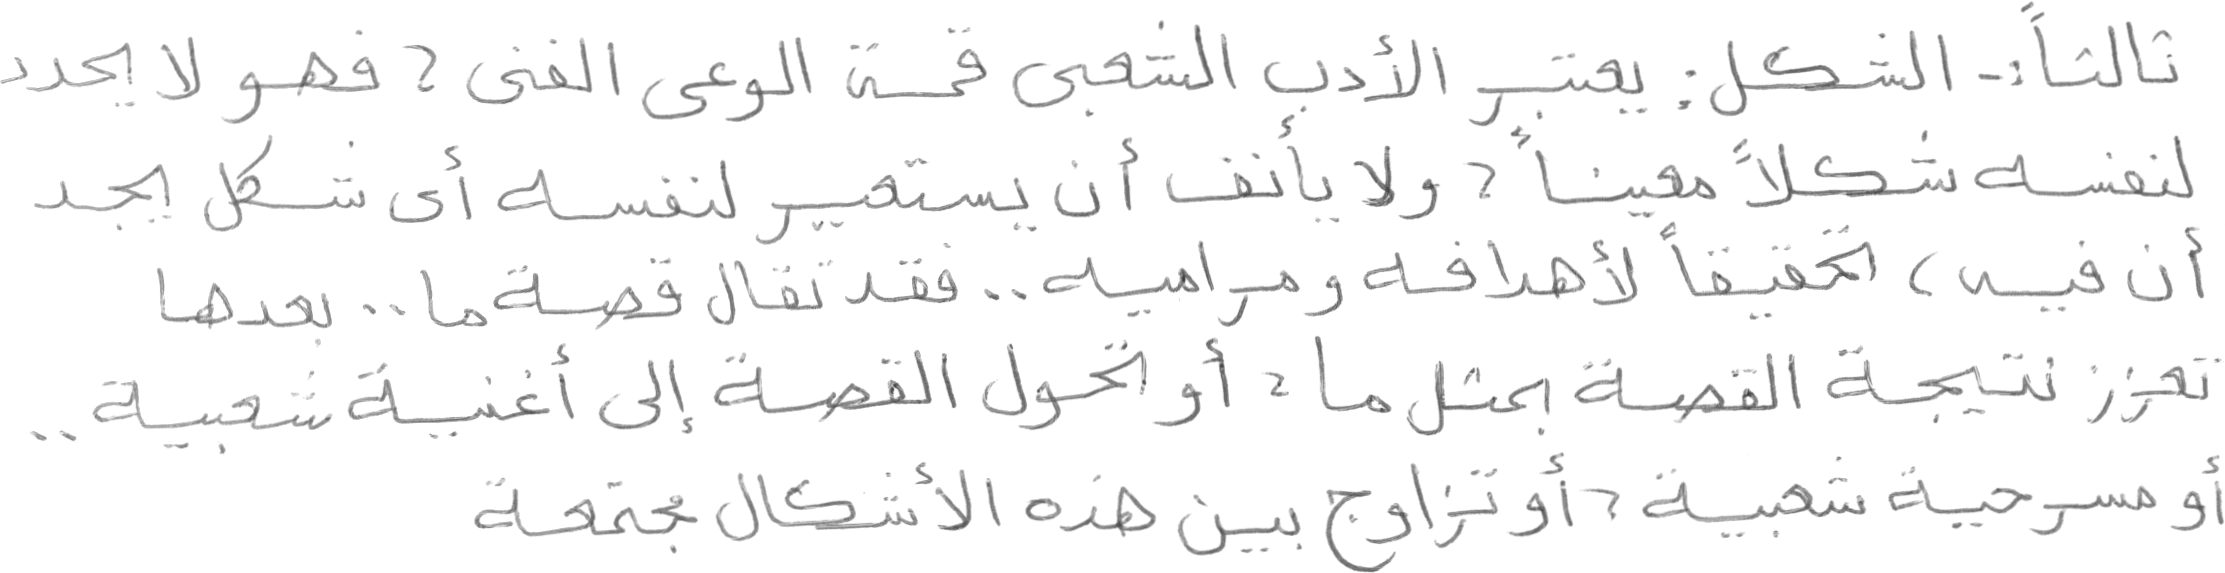 ثالثاً:- الشكل: يعتبر الأدب الشعبى قمة الوعى الفنى ، فهو لا يحدد
لنفسه شكلاً معيناً ، ولا يأنف أن يستعير لنفسه أى شكل يجد
أن فيه ، تحقيقاً لأهدافه ومراميه .. فقد تقال قصة ما .. بعدها
تعزز نتيجة القصة بمثل ما ، أو تحول القصة إلى أغنية شعبية ..
أو مسرحية شعبية ، أو تزاوج بين هذه الأشكال مجتمعة